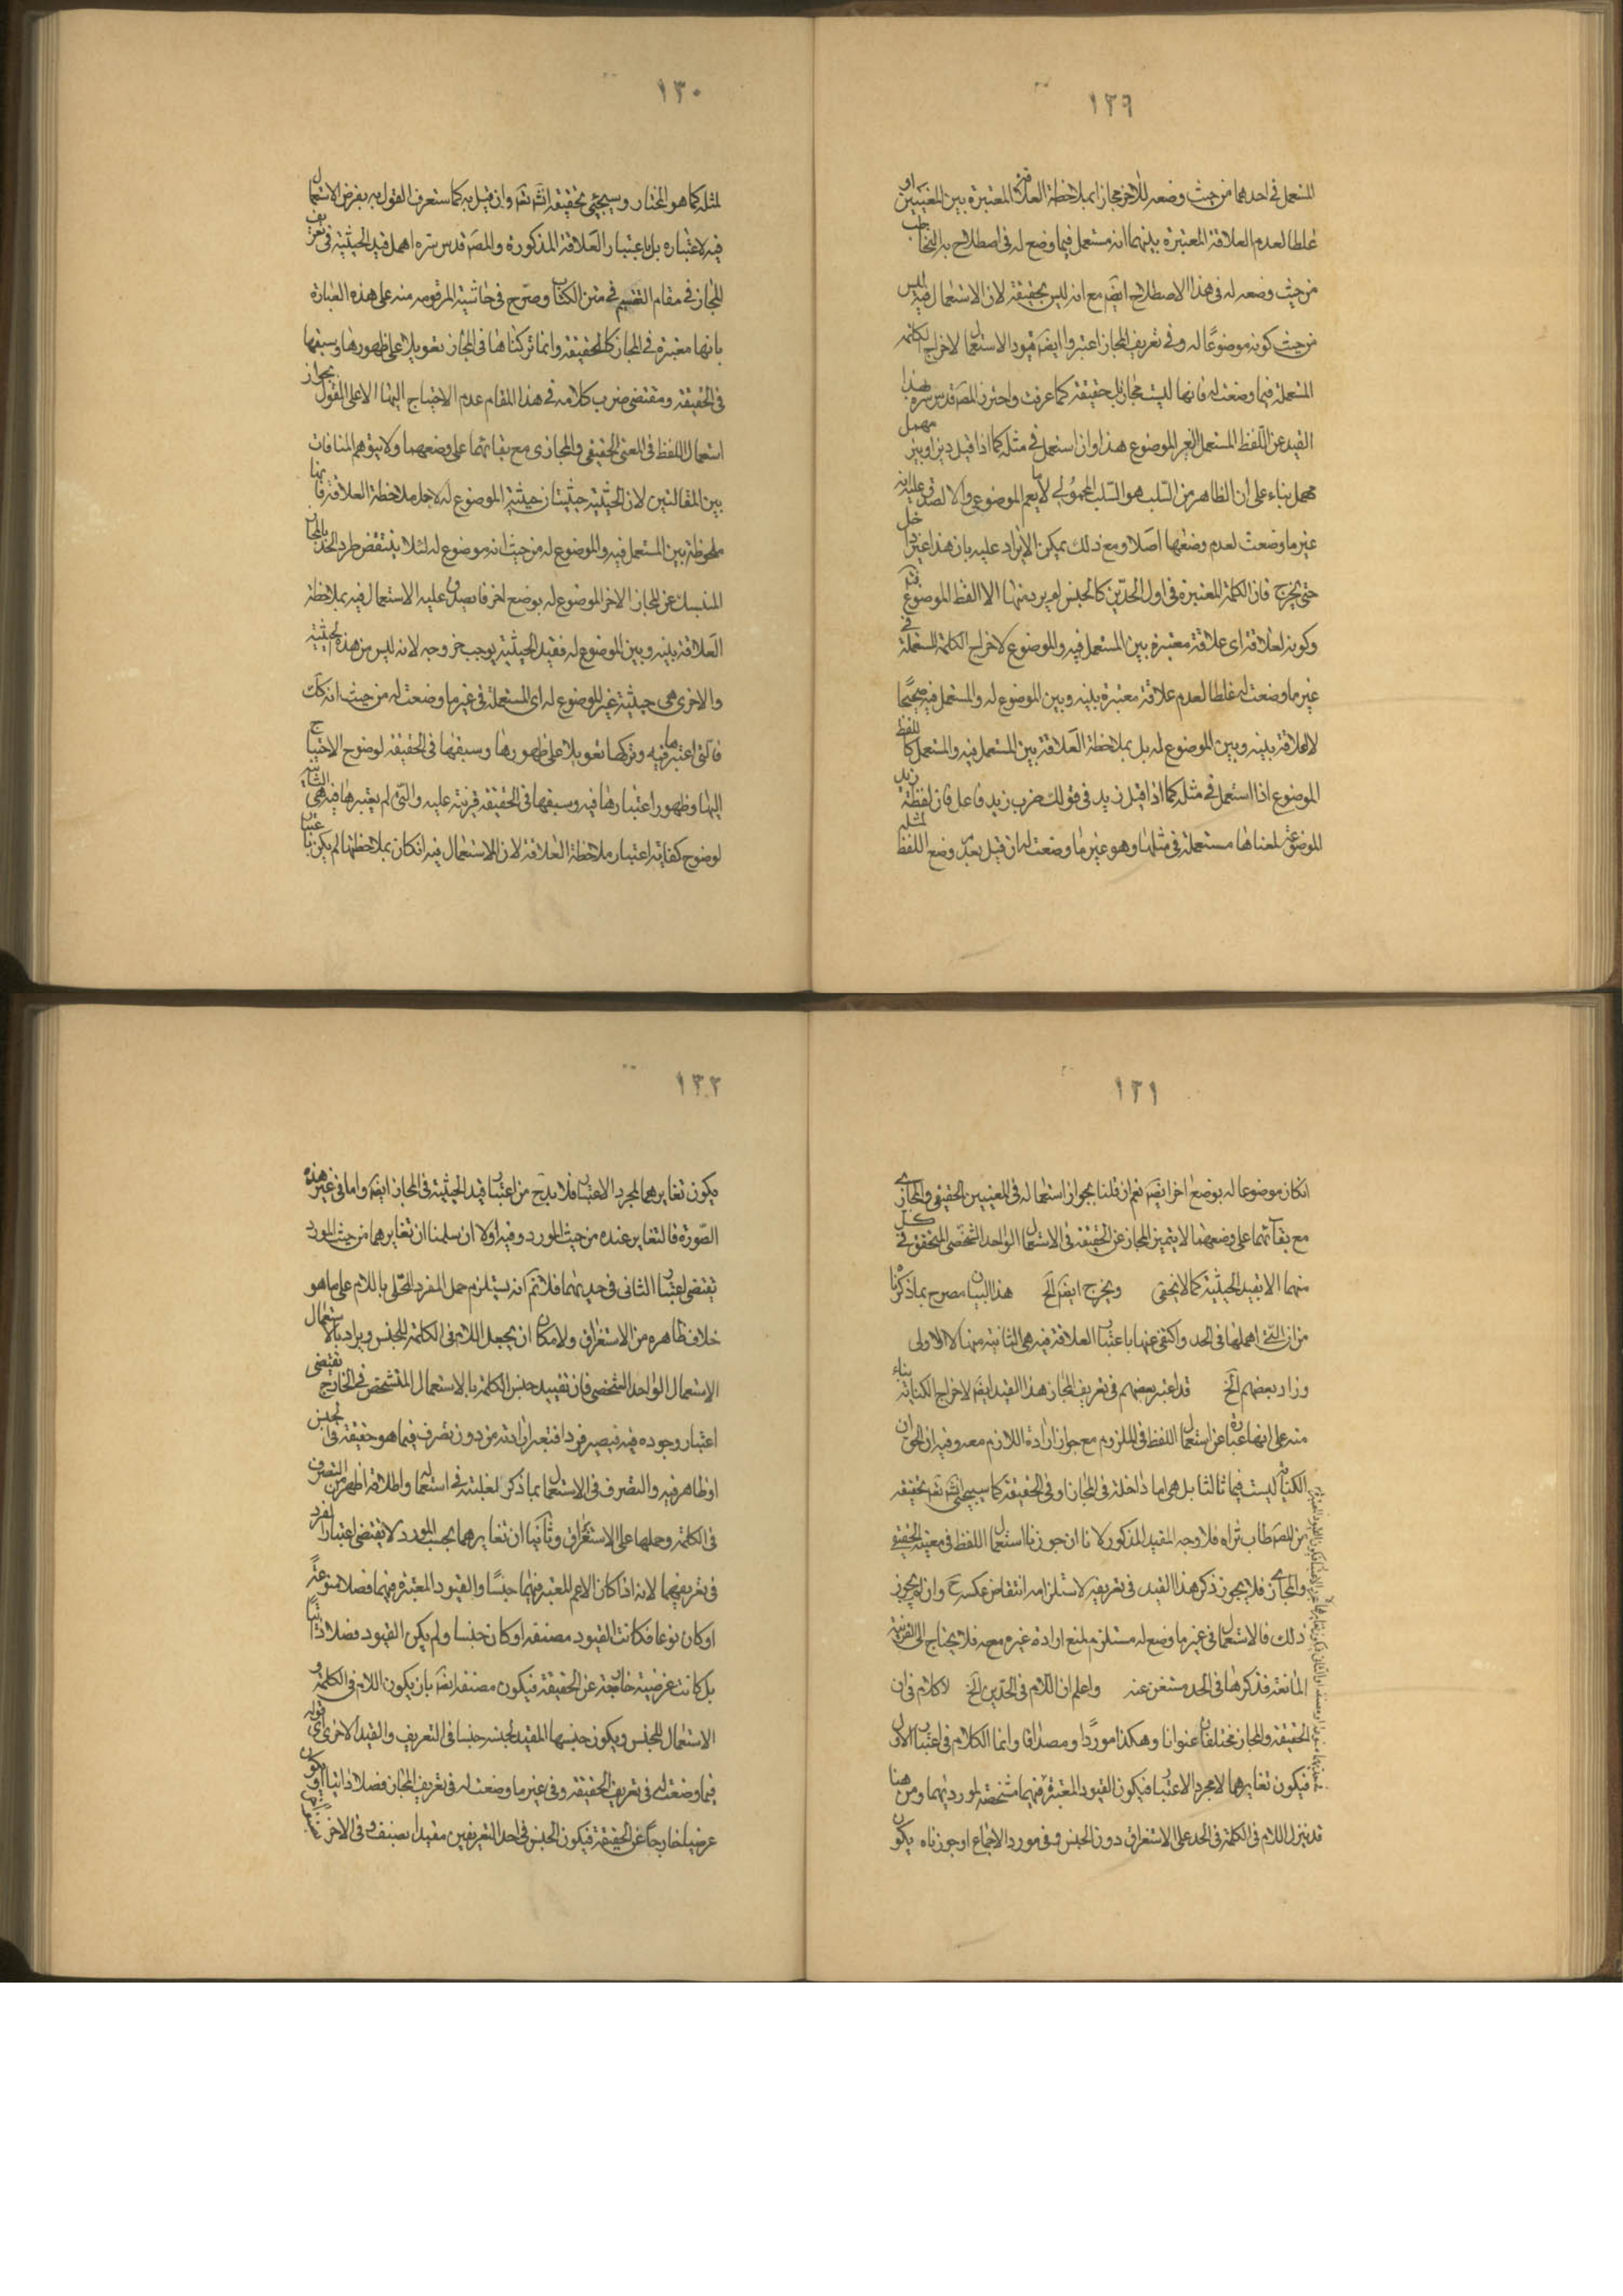 ١٢٩
المستعمل فى احدهما من حيث وضعه للآخر مجازا بملاحظة العلاقة المعتبرة بين المعنيين او
غلطا لعدم العلاقة المعتبرة بينهما انه مستعمل فيما وضع له فى اصطلاح به التخاطب
من حيث وضعه له فى هذا الاصطلاح ايضَ مع انه ليس بحقيقة لان الاستعمال فيه ليس
من حيث كونه موضوعًا له وفى تعريف المجاز اعتبروا ايضَ قيود الاستعمال لاخراج الكلمة
المستعملة فيما وضعت له فانها ليست بمجاز بل حقيقة كما عرفت واحترز المصَ قدس سره بهذا
القيد عن اللفظ المستعمل الغير الموضوع هذا وان استعمل فى مثله كما اذا قيل ديز اوبيز مهمل
مهمل بناء على ان الظاهر من السلب هو السلب المحمولى لا ما يعم الموضوعى والا لصدق عليه انه
غير ما وضعت لعدم وضعها اصلا ومع ذلك يمكن الايراد عليه بان هذا غير داخل
حتى يخرج فان الكلمة المعتبرة فى اول الحدّين كالجنس لم يرد منها الا اللفظ الموضوع
وكونه لعلاقة اى علاقة معتبرة بين المستعمل فيه والموضوع لاخراج الكلمة المستعملة فى
غير ما وضعت له غلطا لعدم علاقة معتبرة بينه وبين الموضوع له والمستعمل فيه صحيحًا
لا لعلاقة بينه وبين الموضوع له بل بملاحظة العلاقة بين المستعمل فيه والمستعمل كاللفظ
الموضوع اذا استعمل فى مثله كما اذا قيل زيد فى قولك ضرب زيد فاعل فان لفظة زيد
الموضوعة لمعناها مستعملة فى مثلها وهو غير ما وضعت له ان قيل بعدم وضع اللفظ لمثله
١٣٠
لمثله كما هو المختار وسيجئ تحقيقه انشَ تعَ وان قيل به كما ستعرف القول به بفرض الاستعمال
فيه لا عتباره بل باعتبار العلاقة المذكورة والمصَ قدس سره اهمل قيد الحيثية فى تعريف
المجاز فى مقام التقسيم فى متن الكتاب وصرّح فى حاشيته المرقومة منه على هذه العبارة
بانها معتبرة فى المجاز كالحقيقة وانما تركناها فى المجاز تعويلا على ظهورها وسبقها
فى الحقيقة ومقتضى ضرب كلامه فى هذا المقام عدم الاحتياج اليها الا على القول بجواز
استعمال اللفظ فى المعنى الحقيقى والمجازى مع بقائهما على وضعهما ولا يتوهم المنافات
بين المقالتين لان الحيثية حيثيتان حيثية الموضوع له لاجل ملاحظة العلاقة فانها
ملحوظة بين المستعمل فيه والموضوع له من حيث انه موضوع له لئلا ينتقض طرد الحد بالمجاز
المنسبك عن المجاز الاخر الموضوع له بوضع اخر فانه يصدق عليه الاستعمال فيه بملاحظة
العلاقة بينه وبين الموضوع له فقيد الحيثية يوجب خروجه لانه ليس من هذه الحيثية
والاخرى هى حيثية غير الموضوع له اى المستعملة فى غير ما وضعت له من حيث انه كَكَ
فالتى اعتبرها فيه وتركها تعويلا على ظهورها وسبقها فى الحقيقة لوضوح الاحتياج
اليها وظهور اعتبارها فيه وسبقها فى الحقيقة قرينة عليه والتى لم يعتبرها فيه هى الثانية
لوضوح كفاية اعتبار ملاحظة العلاقة لان الاستعمال فيه ان كان بملاحظتها لم يكن باعتبار
١٣١
ان كان موضوعا له بوضع اخر ايضَ نعم ان قلنا بجواز استعماله فى المعنيين الحقيقى والمجازى
مع بقائهما على وضعهما لا يتميز المجاز عن الحقيقة فى الاستعمال الواحد الشخصى المتحقق فى كل
منهما الا بقيد الحيثية كما لا يخفى ويخرج ايضَ الَخ هذا البيان مصرح بما ذكرناه
من ان التى اهملها فى الحد واكتفى عنها باعتبار العلاقة فيه هى الثانية منها لا الاولى
وزاد بعضهم الَخ قد اعتبر بعضهم فى تعريف المجاز هذا القيد ايضَ لاخراج الكناية بناء
منه على انها عبارة عن استعمال اللفظ فى الملزوم مع جواز ارادة اللازم معه وفيه ان الحق ان
الكناية ليست قيما ثالثا بل هى اما داخلة فى المجاز او فى الحقيقة كما سيجئ انشَ تعَ تحقيقه
من المصَ طاب ثراه فلا وجه للقيد المذكور لانا ان جوزنا استعمال اللفظ فى معنيه الحقيقى
والمجازى فلا يجوز ذكر هذا القيد فى تعريفه لاستلزامه انتقاض عكسه حَ وان لم يجوز
ذلك فالاستعمال فى غير ما وضع له مستلزم لمنع ارادة غيره معه فلا يحتاج الى القرينة
المانعة فذكرها فى الحد مستغن عنه واعلم ان اللام فى الحدّين الَخ لا كلام فى ان
الحقيقة والمجاز مختلفان عنوانا وهكذا موردًا ومصداقا وانما الكلام فى اعتبار الاول
فيكون تغايرهما لا مجرد الاعتبار فيكون القيود المعتبرة فيهما مشخصة لمورديهما ومن هنا
قد ينزل اللام فى الكلمة فى الحد على الاستغراق دون الجنس وفى مورد الاجتماع اوجوزناه يكون
١٣٢
يكون تغايرهما بمجرد الاعتبار فلا بد حَ من اعتبار قيد الحيثية فى المجاز ايضَ واما فى غير هذه
الصّورة فالتغاير عنده من حيث المورد وفيه اولا ان سلمنا ان تغايرهما من حيث المورد
يقتضى اعتبار الثانى فى حديهما فلا نمَ انه يستلزم حمل المفرد المحلى باللام على ما هو
خلاف ظاهره من الاستغراق ولا مكان ان يجعل اللام فى الكلمة للجنس ويراد بالاستعمال
الاستعمال الواحد الشخصى فان تقييد جنس الكلمة بالاستعمال المتشخص فى الخارج يقتضى
اعتبار وجوده فيه فيصير فردا فتعبر ارادته من دون تصرف فيما هو حقيقة فى الجنس
او ظاهر فيه والتصرف فى الاستعمال بما ذكر لغلبته فى استعماله واطلاقه اظهر من التصرف
فى الكلمة وحملها على الاستغراق وثانيا ان تغايرهما بحسب المورد لا يقتضى اعتبار المفرد
فى تعريفهما لانه اذا كان الاعم المعتبر فيهما جنسًا والقيود المعتبرة فيهما فصلا منوعةً
او كان نوعا فكانت القيود مصنفة او كان جنسا ولم يكن القيود فصلا ذاتيًا
بل كانت عرضية خارجة عن الحقيقة فيكون مصنفة ايضَ بان يكون اللام فى الكلمة و
الاستعمال للجنس ويكون جنسها المقيد لجنسه جنسا فى التعريف والقيد الاخرى اى قوله
فيما وضعت له فى تعريف الحقيقة وفى غير ما وضعت له فى تعريف المجاز فصلا ذاتيا او يكون
عرضيا خارجا عن الحقيقة فيكون الجنس فى احد التعريفين مقيدا بصنف وفى الاخر